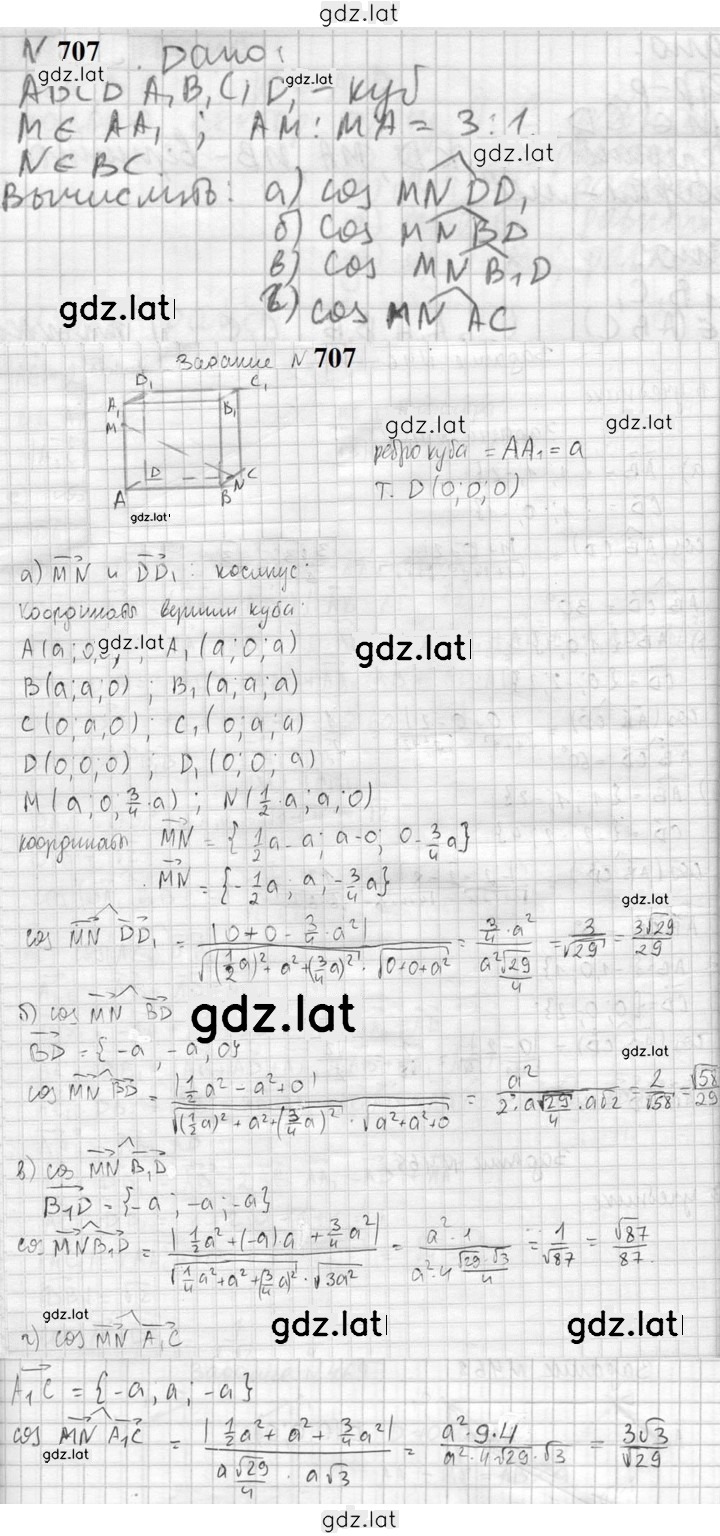 gdz.lat
N 707 . Дано:
gdz.lat
gdz.lat
ABCD A₁B₁C₁D₁ - куб
M ∈ AA₁ ; AM : MA = 3:1.
gdz.lat
N ∈ BC
Вычислить: а) cos MN DD₁
б) cos MN BD
в) cos MN B₁D
gdz.lat
г) cos MN AC
Задание N 707
D₁ C₁
A₁ B₁
M
D C
A B N
gdz.lat
gdz.lat
gdz.lat
ребро куба = AA₁ = a
т. D(0;0;0)
а) MN и DD₁ : косинус:
Координаты вершин куба:
A(a;0; gdz.lat ; A₁(a;0;a)
gdz.lat
B(a;a;0) ; B₁(a;a;a)
C(0;a,0); C₁(0;a;a)
D(0;0;0) ; D₁(0;0;a)
M(a;0;3/4·a) ; N(1/2·a;a;0)
координаты MN = {1/2a-a; a-0; 0-3/4a}
MN = {-1/2a; a; -3/4a}
gdz.lat
cos MN DD₁ = |0+0-3/4·a²| / √((1/2a)²+a²+(3/4a)²)·√(0+0+a²) = 3/4·a² / a²√29/4 = 3/√29 = 3√29/29
б) cos MN BD
gdz.lat
BD = {-a, -a, 0}
gdz.lat
cos MN BD = |1/2a²-a²+0| / √((1/2a)²+a²+(3/4a)²)·√(a²+a²+0) = a² / 2·a√29/4·a√2 = 2/√58 = √58/29
в) cos MN B₁D
B₁D = {-a; -a; -a}
cos MN B₁D = |1/2a²+(-a)a+3/4a²| / √(1/4a²+a²+(3/4a)²)·√3a² = a²·1 / a²·4 √29·√3/4 = 1/√87 = √87/87.
gdz.lat
gdz.lat
gdz.lat
г) cos MN A₁C
A₁C = {-a; a; -a}
cos MN A₁C = |1/2a²+a²+3/4a²| / a√29/4 · a√3 = a²·9·4 / a²·4√29·√3 = 3√3/√29
gdz.lat
gdz.lat